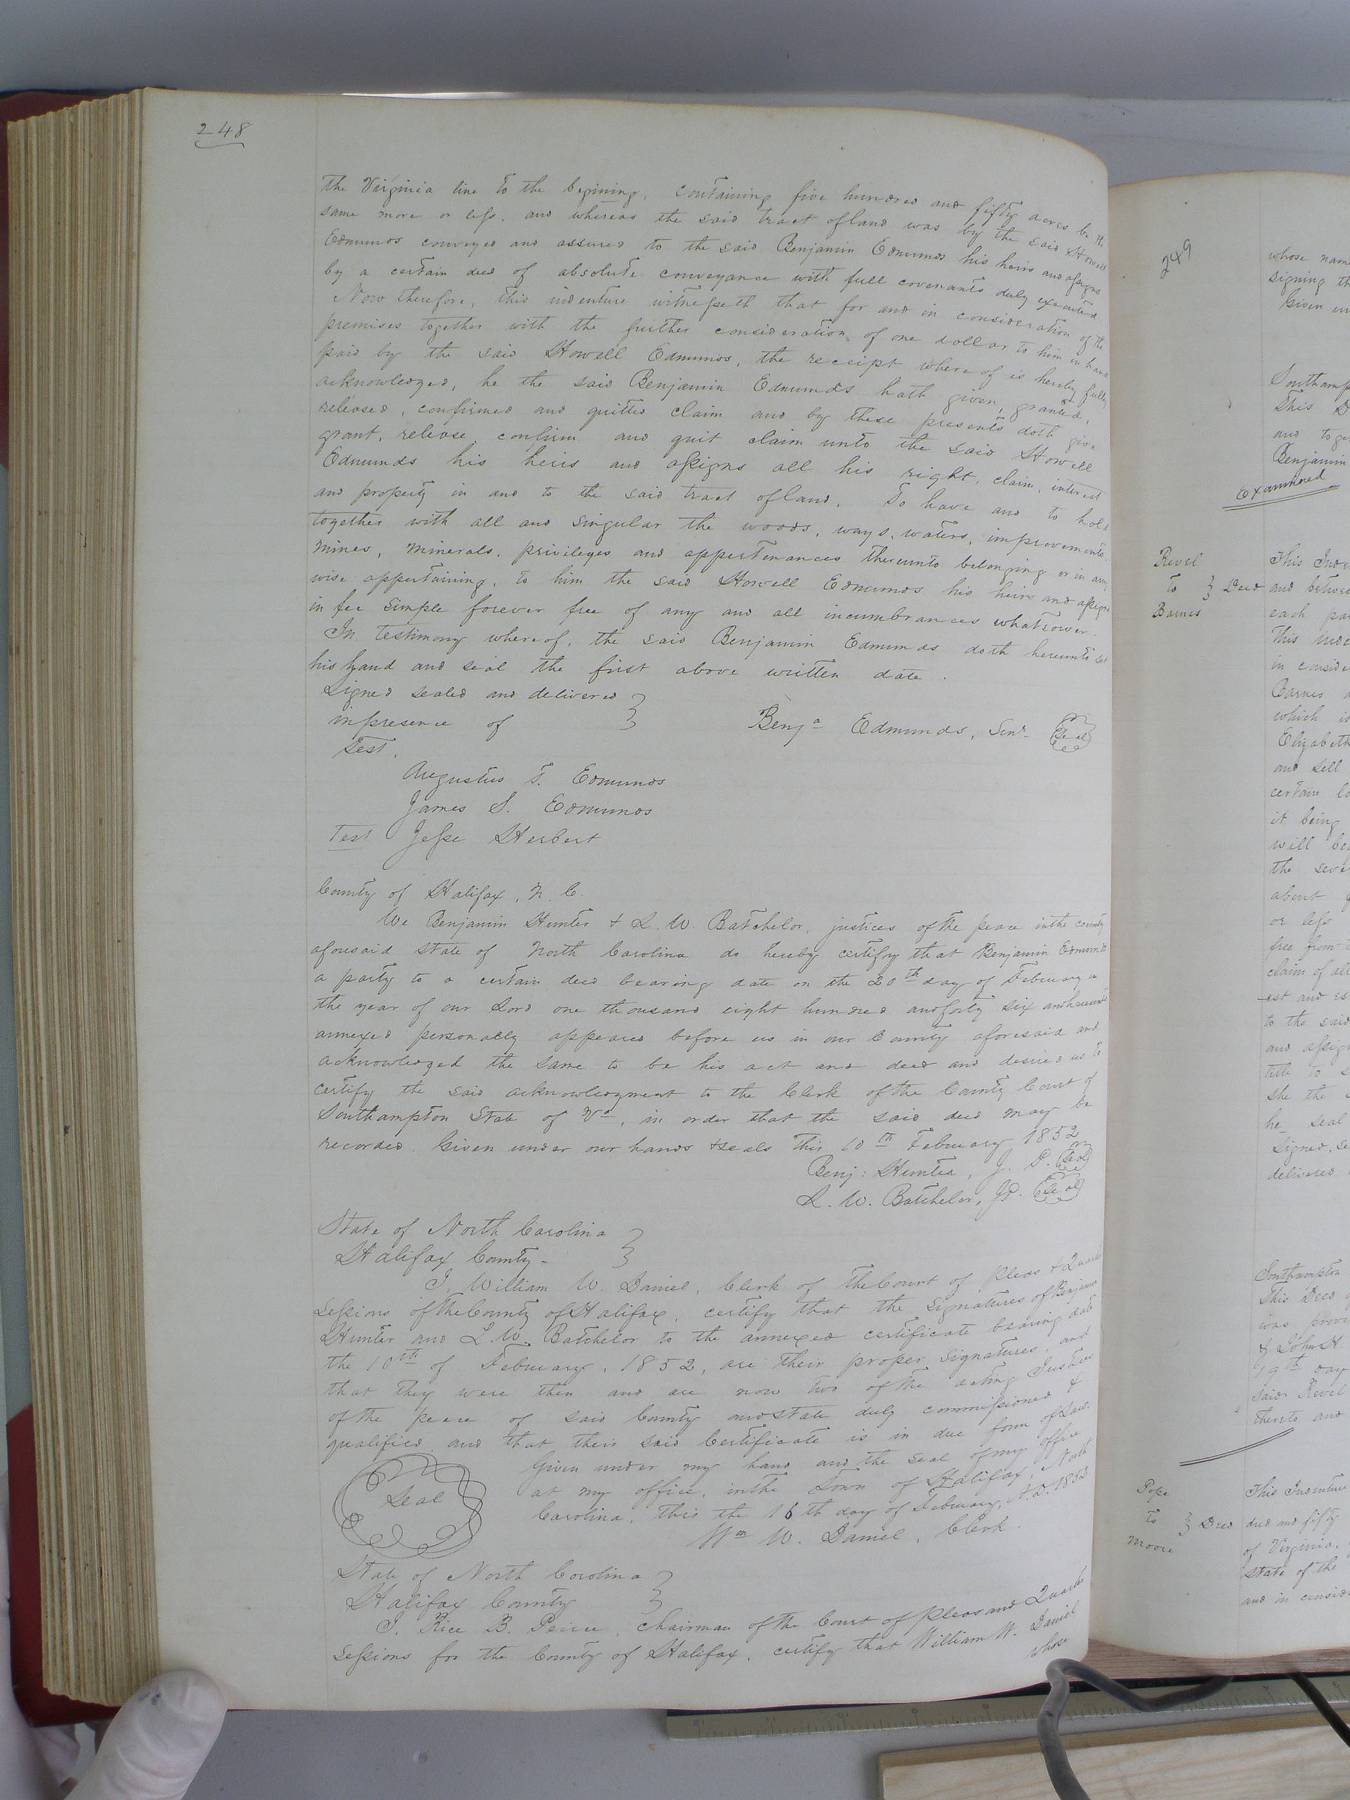 248
the Virginia line to the begining, containing five hundred and fifty acres be the
same more or less, and whereas the said tract of land was by the said Howell
Edmunds conveyed and assured to the said Benjamin Edmunds his heirs and assigns
by a certain deed of absolute conveyance with full covenants duly executed
Now therefore, this indenture witnesseth that for and in consideration of the
premises together with the further consideration of one dollar to him in hand
paid by the said Howell Edmunds, the receipt whereof is hereby fully
acknowledged, he the said Benjamin Edmunds hath given, granted,
released, confirmed and quitted claim and by these presents doth give
grant, release, confirm and quit claim unto the said Howell
Edmunds his heirs and assigns all his right, claim, interest
and property in and to the said tract of land. To have and to hold
together with all and singular the woods, ways, waters, improvements
mines, minerals, privileges and appertinances thereunto belonging or in any
wise appertaining, to him the said Howell Edmunds his heirs and assigns
in fee simple forever free of any and all incumbrances whatsoever.
In testimony whereof, the said Benjamin Edmunds doth hereunto set
his hand and seal the first above written date.
Signed sealed and delivered }
in presence of } Benja Edmunds, Senr. Seal
Test.
Augustus T. Edmunds
James S. Edmunds
Test Jesse Herbert
County of Halifax, N. C.
We Benjamin Hunter & L. W. Batchelor, justices of the peace in the county
aforesaid State of North Carolina do hereby certify that Benjamin Edmunds
a party to a certain deed bearing date on the 20th day of February in
the year of our Lord one thousand eight hundred and forty six and hereunto
annexed personally appeared before us in our County aforesaid and
acknowledged the same to be his act and deed and desired us to
certify the said acknowledgment to the Clerk of the County Court of
Southampton State of Va, in order that the said deed may be
recorded. Given under our hands & seals this 10th February 1852
Benj: Hunter, J. P. Seal
L. W. Batchelor, JP. Seal
State of North Carolina }
Halifax County - }
I William W. Daniel, Clerk of the Court of Pleas & Quarter
Sessions of the County of Halifax, certify that the signatures of Benjamin
Hunter and L. W. Batchelor to the annexed certificate bearing date
the 10th of February, 1852, are their proper signatures, and
that they were then and are now two of the acting Justices
of the peace of said County and State duly commissioned &
qualified and that their said Certificate is in due form of law.
Given under my hand and the seal of my office
at my office, in the Town of Halifax, North
Carolina, this the 16th day of February, A.D. 1852
Seal
Wm W. Daniel, Clerk.
State of North Carolina }
Halifax County }
I, Rice B. Peirce, Chairman of the Court of Pleas and Quarter
Sessions for the County of Halifax, certify that William W. Daniel
whose
249
whose name
signing th
Given un
Southamp
This D
and toge
Benjamin
Examined
Revel
to } Deed
Barnes
This Inde
and betwe
each par
This inde
in conside
Barnes a
which is
Elizabeth
and sell
certain lo
it being
will be
the seve
about
or less
free from
claim of all
est and es
to the said
and assign
title to s
she the
he seal
Signed, se
delivered
Southampton
This Deed
was prov
& John H.
19th day
said Revel
thereto and
Pope
to } Deed
Moore
This Indenture
dred and fifty
of Virginia,
State of the
and in conside